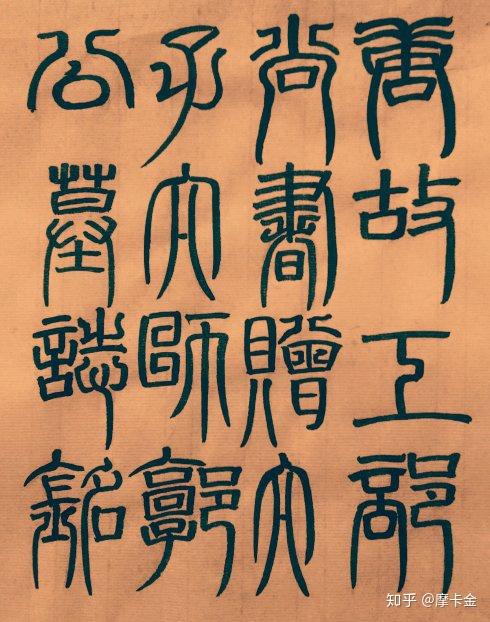 唐故工部
尚書贈太
子太師郭
公墓誌銘
知乎 @摩卡金